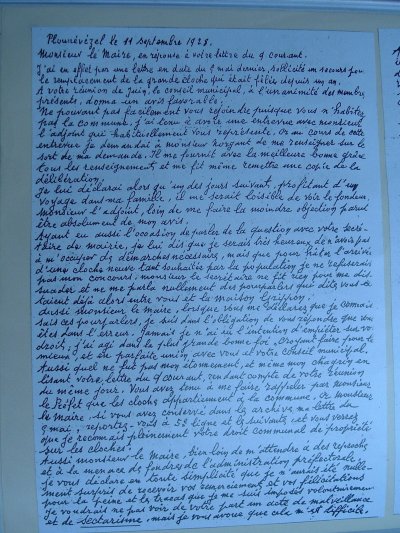 Plounévézel le 11 septembre 1928.
Monsieur le Maire, en réponse à votre lettre du 9 courant.
J'ai en effet par une lettre en date du 9 mai dernier, sollicité un secours pour
le remplacement de la grande cloche qui était fêlée depuis un an.
A votre réunion de Juin, le conseil municipal, à l'unanimité des membres
présents, donna un avis favorable.
Ne pouvant pas facilement vous rejoindre puisque vous n'habitez
pas la commune, j'ai tenu à avoir une entrevue avec monsieur
l'adjoint qui habituellement vous représente. Or au cours de cette
entrevue je demandai à monsieur Rorgant de me renseigner sur le
sort de ma demande. Il me fournit avec la meilleure bonne grâce
tous les renseignements et me fit même remettre une copie de la
délibération.
Je lui déclarai alors qu'un des jours suivant, profitant d'un
voyage dans ma famille, il me serait loisible de voir le fondeur.
Monsieur l'adjoint, loin de me faire la moindre objection parut
être absolument de mon avis.
Ayant eu aussi l'occasion de parler de la question avec votre secré-
taire de mairie, je lui dis que je serais très heureux de n'avoir pas
à m'occuper des démarches nécessaires, mais que pour hâter l'arrivée
d'une cloche neuve tant souhaitée par la population je ne refuserais
pas mon concours. Monsieur le secrétaire ne fit rien pour me dis-
suader et ne me parla nullement des pourparlers que dites-vous é-
taient déjà alors entre vous et la maison
Aussi monsieur le maire lorsque vous me déclarez que je connais-
sais ces pourparlers, je suis dans l'obligation de vous répondre que vous
êtes dans l'erreur. Jamais je n'ai eu l'intention d'empiéter sur vo-
droit, j'ai agi dans la plus grande bonne foi, croyant faire pour le
mieux, et en parfaite union avec vous et votre conseil municipal.
Aussi quel ne fut pas mon étonnement, et même mon chagrin en
lisant votre lettre du 9 courant, rendant compte de votre réunion
du même jour. Vous avez tenu à me faire rappeler par monsieur
le Préfet que les cloches appartiennent à la commune. Or monsieur
le maire, si vous avez conservé dans les archives ma lettre du
9 mai, reportez-vous à 5è ligne et suivantes et vous verrez
que je reconnais pleinement votre droit communal de propriété
sur les cloches.
Aussi monsieur le Maire, bien loin de m'attendre à des reproches
et à la menace de foudres de l'administration préfectorale,
je vous déclare en toute simplicité que je n'aurais été nulle-
ment surpris de recevoir vos remerciements et vos félicitations
pour la peine et les tracas que je me suis imposés volontairement
Je voudrais ne pas voir de votre part un acte de malveillance
et de sectarisme, mais je vous avoue que cela m'est difficile.